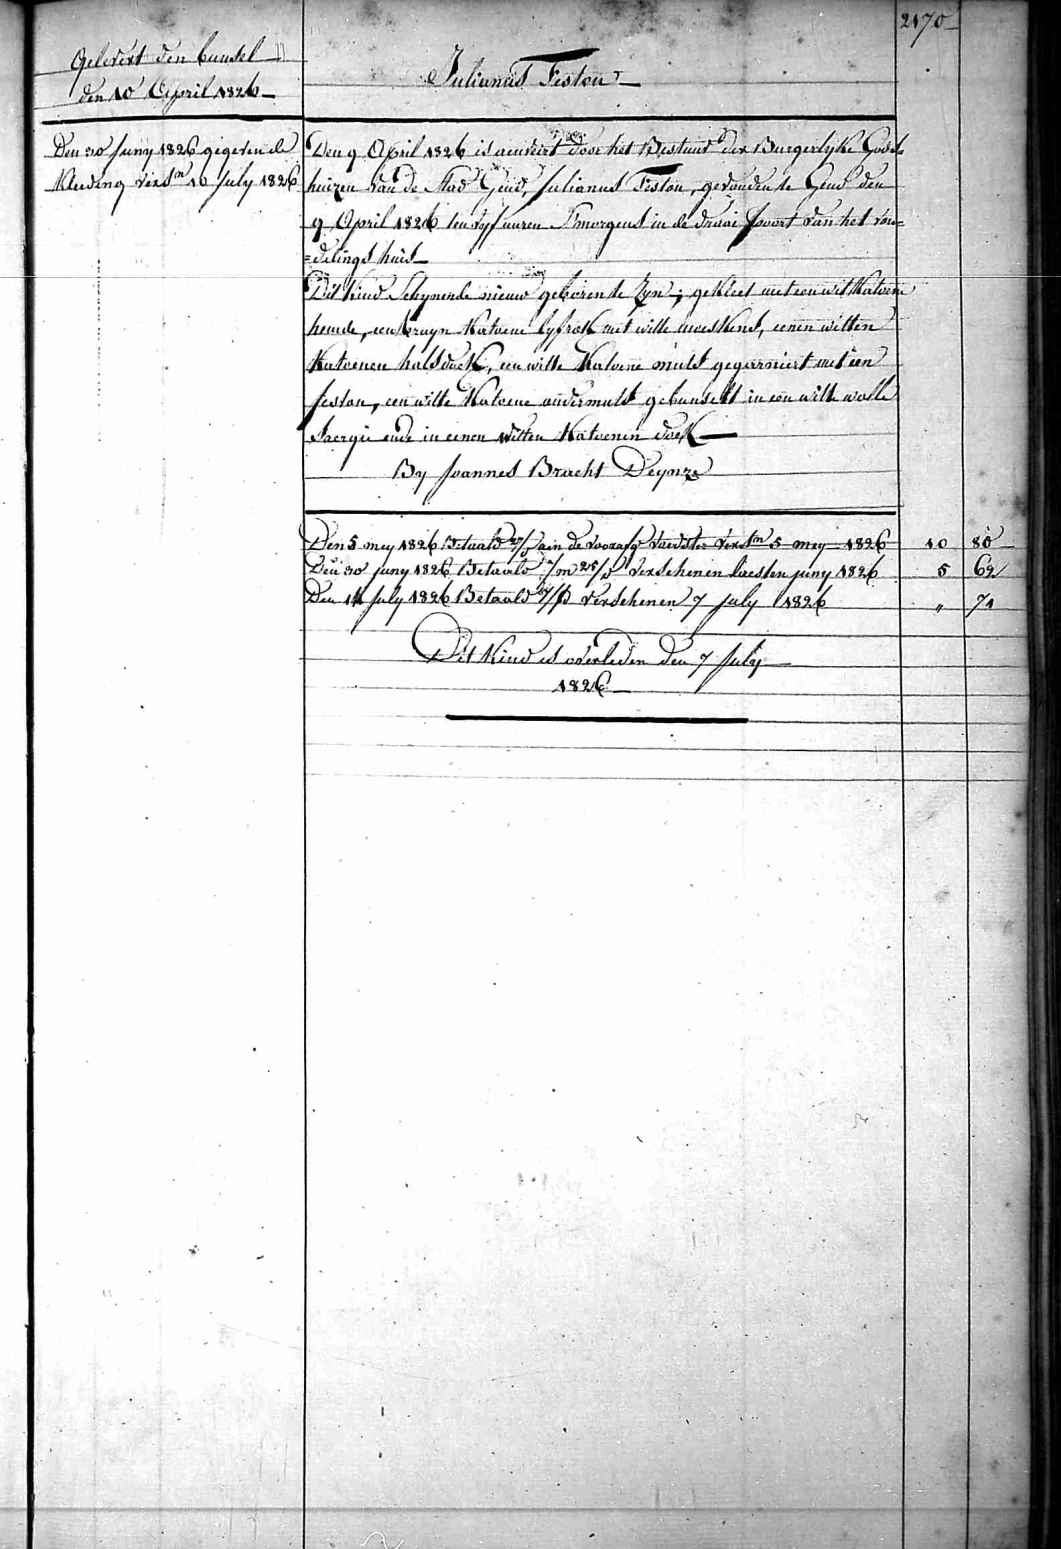 2170
Gelevert den bunsel
den 10 April 1826
Julianus Feston
Den 30 Juny 1826 gegeven de
Kleeding versn 10 July 1826
Den 9 April 1826 is aenveirt door het Bestuur der Burgerlyke Gods=
huizen van de Stad Gend, Julianus Feston, gevonden te Gend den
9 April 1826 ten vyf uuren S'morgens in de draai poort van het von=
=delings huis
Dit kind Schynende nieuw geboren te Zyn; gekleet met een wit Katoene
hemde, een bruyn Katoene lyfrok met witte mouskens, eenen witten
Katoenen halsdoek, een witte Katoene muts gegarniert met een
feston, een witte Katoene ondermuts gebunselt in een witte wolle
Saergie ende in eenen witten Katoenen doek
By Joannes Bracht Deynze
Den 5 mey 1826 Betaald aen de voorafg versn 5 mey 1826 10 80
Den 30 juny 1826 Betaald 1/m 25/d Verschenen laesten juny 1826 5 62
Den 14 July 1826 Betaald Verschenen 7 July 1826 " 71
Dit Kind is overleden den 7 July
1826